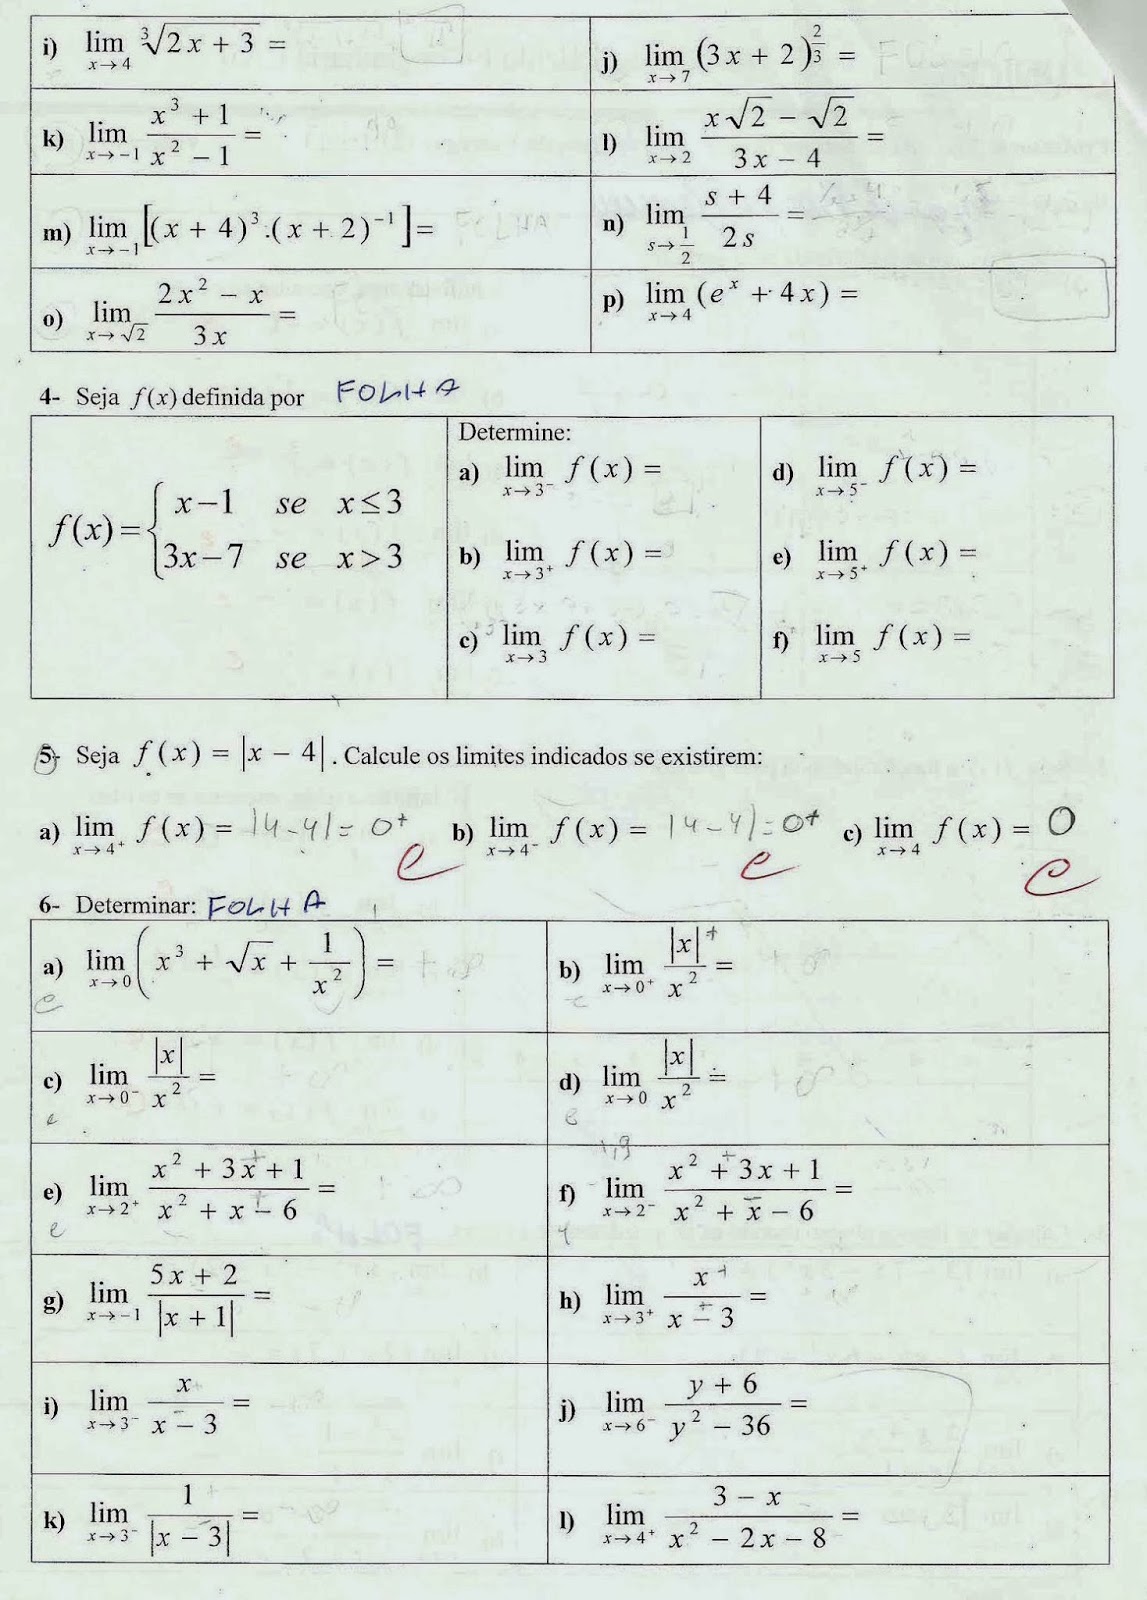 i) lim x→4 ∛(2x + 3) =
j) lim x→7 (3x + 2)^(2/3) =
k) lim x→-1 (x³ + 1)/(x² − 1) =
l) lim x→2 (x√2 − √2)/(3x − 4) =
m) lim x→-1 [(x + 4)³.(x + 2)⁻¹] =
n) lim s→1/2 (s + 4)/(2s) =
o) lim x→√2 (2x² − x)/(3x) =
p) lim x→4 (eˣ + 4x) =
4- Seja f(x) definida por FOLHA
f(x) = { x−1 se x≤3
3x−7 se x>3
Determine:
a) lim x→3⁻ f(x) =
b) lim x→3⁺ f(x) =
c) lim x→3 f(x) =
d) lim x→5⁻ f(x) =
e) lim x→5⁺ f(x) =
f) lim x→5 f(x) =
5- Seja f(x) = |x − 4|. Calcule os limites indicados se existirem:
a) lim x→4⁺ f(x) = |4-4| = 0⁺ b) lim x→4⁻ f(x) = |4-4| = 0⁺ c) lim x→4 f(x) = 0
e e e
6- Determinar: FOLHA
a) lim x→0 (x³ + √x + 1/x²) =
b) lim x→0⁺ |x|/x² =
c) lim x→0⁻ |x|/x² =
d) lim x→0 |x|/x² =
e) lim x→2⁺ (x² + 3x + 1)/(x² + x − 6) =
f) lim x→2⁻ (x² + 3x + 1)/(x² + x − 6) =
g) lim x→-1 (5x + 2)/|x + 1| =
h) lim x→3⁺ x/(x − 3) =
i) lim x→3⁻ x/(x − 3) =
j) lim x→6⁻ (y + 6)/(y² − 36) =
k) lim x→3⁻ 1/|x − 3| =
l) lim x→4⁺ (3 − x)/(x² − 2x − 8) =